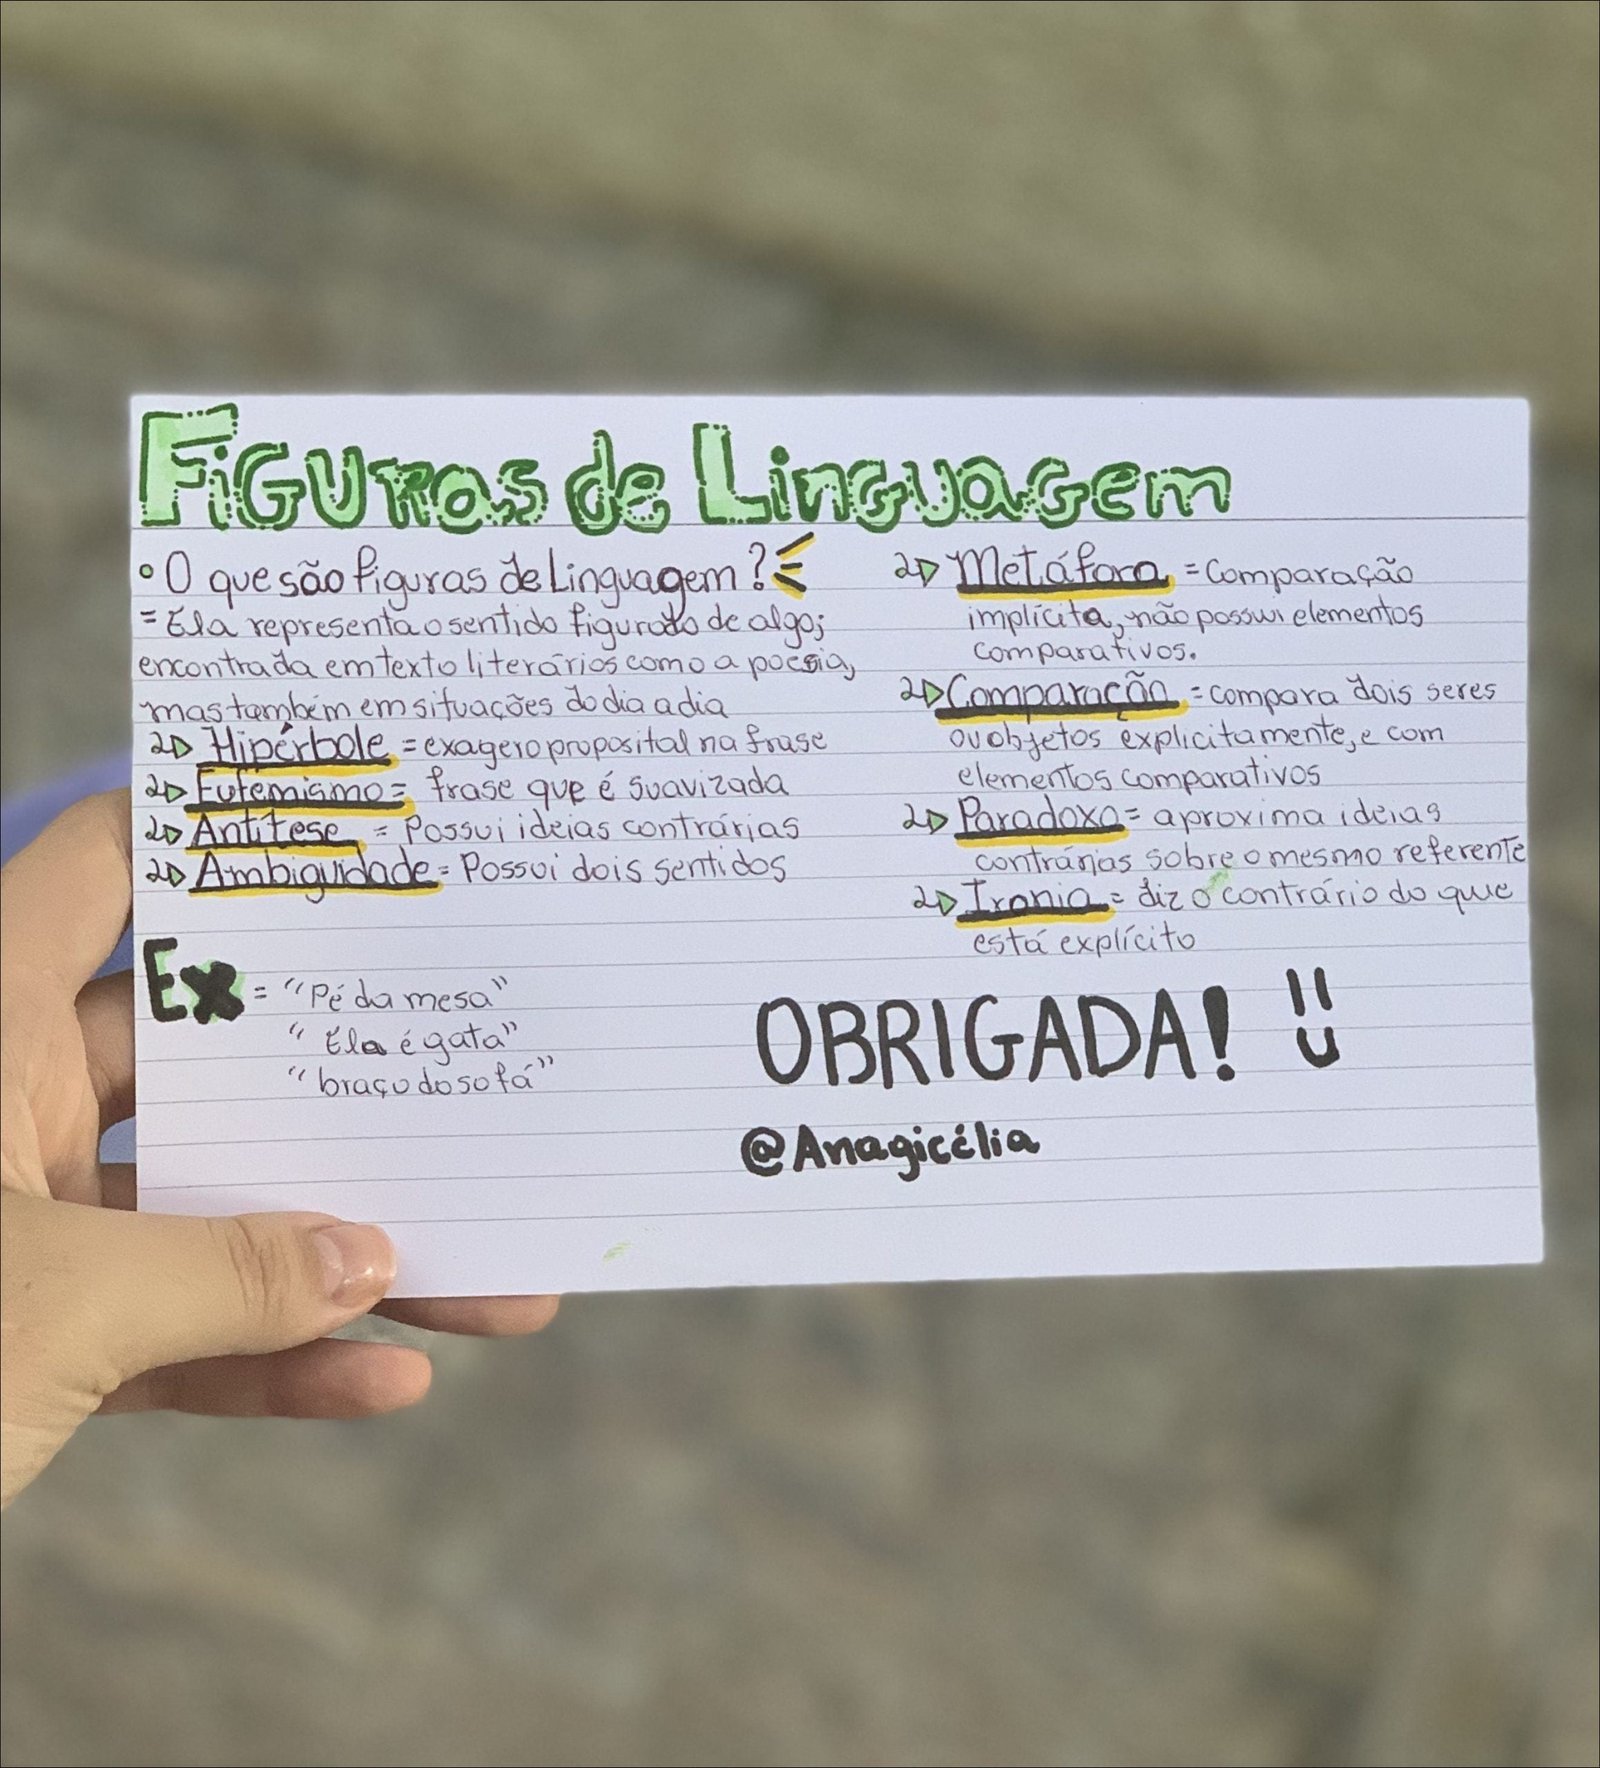 Figuras de Linguagem
• O que são figuras de Linguagem?
= Ela representa o sentido figurado de algo;
encontrada em texto literários como a poesia,
mas também em situações do dia a dia
Hipérbole = exagero proposital na frase
Eufemismo = frase que é suavizada
Antítese = Possui ideias contrárias
Ambiguidade = Possui dois sentidos
Ex = "Pé da mesa"
"Ela é gata"
"braço do sofá"
Metáfora = Comparação
implícita, não possui elementos
comparativos.
Comparação = compara dois seres
ou objetos explicitamente, e com
elementos comparativos
Paradoxo = aproxima ideias
contrárias sobre o mesmo referente
Ironia = diz o contrário do que
está explícito
OBRIGADA!
@Anagicélia